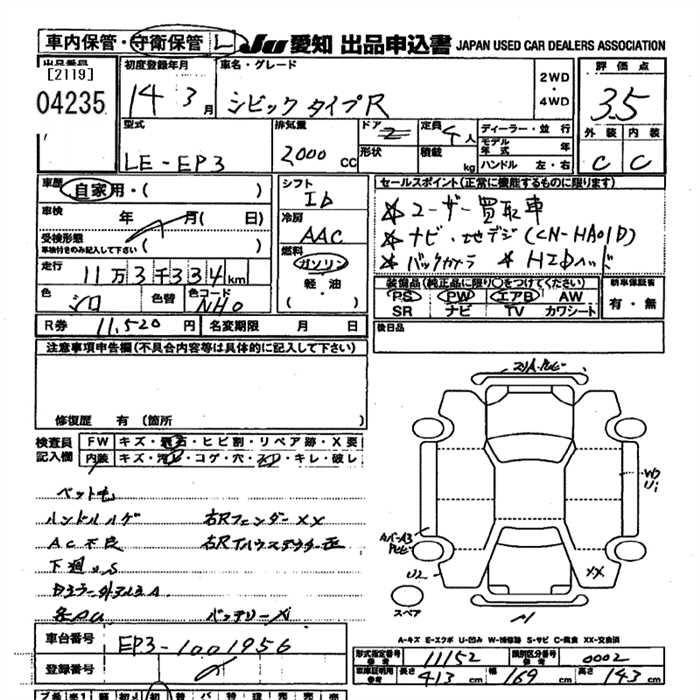 車内保管・守衛保管 L JU 愛知 出品申込書 JAPAN USED CAR DEALERS ASSOCIATION
出品番号 [2119] 04235
初度登録年月 14 3月
車名・グレード シビック タイプR
2WD・4WD
評価点 3.5
外装 C 内装 C
型式 LE-EP3
排気量 2000 CC
ドア 2
形状
定員 4人
積載 kg
ディーラー・並行
モデル年式 年
ハンドル 左・右
車歴 自家用・( )
車検 年 月( 日)
受検形態 車検付きのみ記入して下さい ( )
走行 11万3千334km
色 シロ 色替 色コード NH0
R券 11,520円 名変期限 月 日
シフト I5
冷房 AAC
燃料 ガソリン・軽油 ( )
セールスポイント(正常に機能するものに限ります)
☆ユーザー買取車
☆ナビ・地デジ(CN-HA01D)
☆バックカメラ ☆HIDヘッド
装備品(純正品に限り○をつけてください)
PS PW エアB AW
SR ナビ TV カワシート
新車保証書 有・無
後日品
注意事項申告欄(不具合内容等は具体的に記入して下さい)
修復歴 有(箇所 )
検査員記入欄
FW キズ・飛石・ヒビ割・リペア跡・X要
内装 キズ・汚レ・コゲ・穴・スレ・キレ・破レ
ペット毛
ハンドルハゲ 右RフェンダーXX
AC不良
下廻りS
バッテリーX
U2
XX
スペア
A-キズ E-エクボ U-凹み W-補修跡 S-サビ C-腐食 XX-交換済
車台番号 EP3-1001956
登録番号
形式指定番号 参考 11152
類別区分番号 参考 0002
車車証明用 参考 長さ 413cm 幅 169cm 高さ 143cm